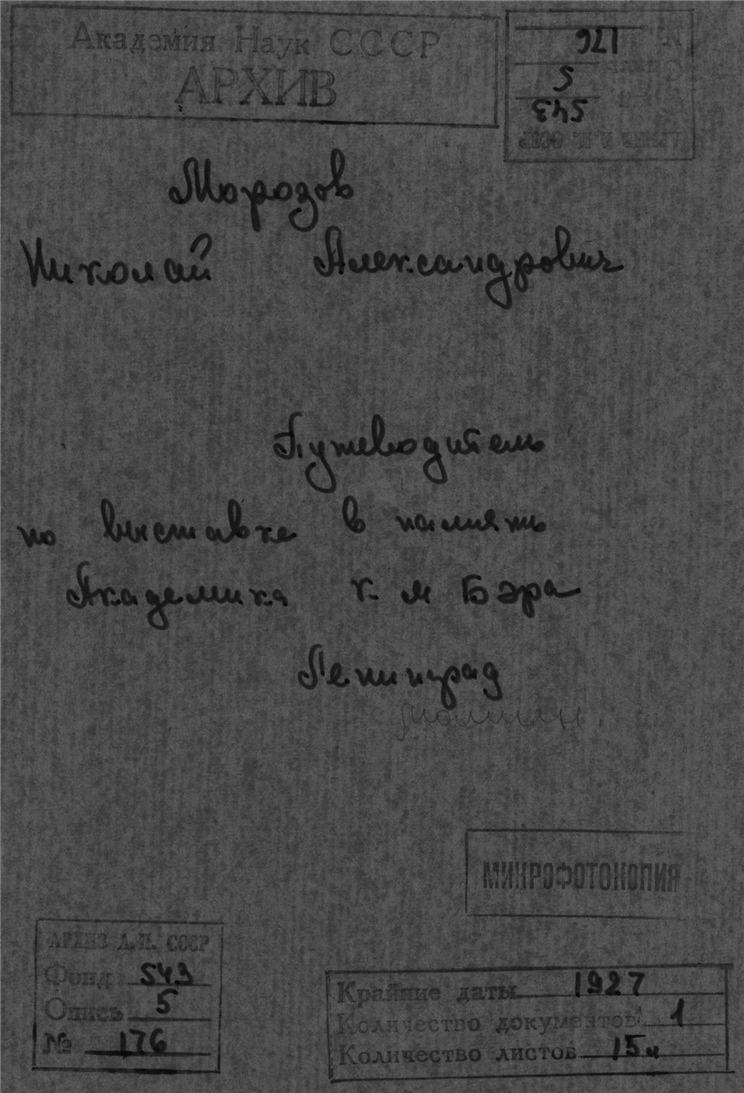 Академия Наук СССР
АРХИВ
№ 176
5
543
Морозов
Николай Александрович
Путеводитель
по выставке в память
Академика К. М Бэра
Ленинград
МИКРОФОТОКОПИЯ
АРХИВ А.Н. СССР
Фонд 543
Опись 5
№ 176
Крайние даты 1927
Количество документов 1
Количество листов 15